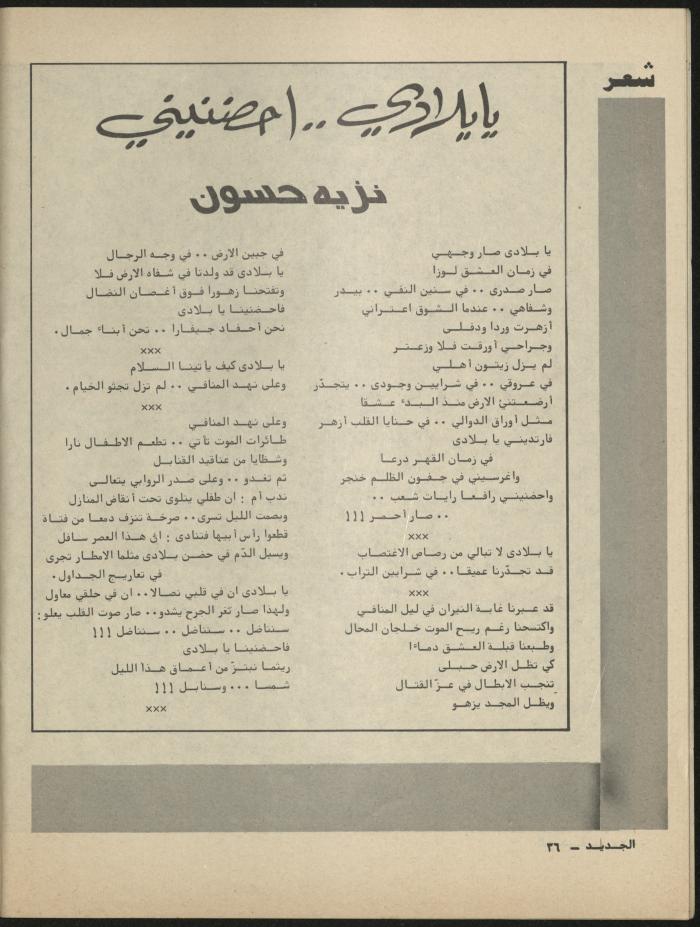 شعر
يا بلادي .. احضنيني
نزيه حسون
يا بلادى صار وجهي
في زمان العشق لوزا
صار صدرى ٠٠ في سنين النفي ٠٠ بيدر
وشفاهي ٠٠ عندما الشوق اعتراني
أزهرت وردا ودفلى
وجراحي أورقت فلا وزعتر
لم يزل زيتون أهلي
في عروقي ٠٠ في شرايين وجودى ٠٠ يتجذّر
أرضعتني الارض منذ البدء عشقا
مثل أوراق الدوالي ٠٠ في حنايا القلب أزهر
فارتديني يا بلادى
في زمان القهر درعا
واغرسيني في جفون الظلم خنجر
واحضنيني رافعا رايات شعب ٠٠
٠٠ صار أحمر !!!
×××
يا بلادى لا تبالي من رصاص الاغتصاب
قد تجذّرنا عميقا ٠٠ في شرايين التراب ٠
×××
قد عبرنا غابة النيران في ليل المنافي
واكتسحنا رغم ريح الموت خلجان المحال
وطبعنا قبلة العشق دماءا
كي تظل الارض حبلى
تنجب الابطال في عزّ القتال
ويظل المجد يزهو
في جبين الارض ٠٠ في وجه الرجال
يا بلادى قد ولدنا في شفاه الارض فلا
وتفتحنا زهورا فوق أغصان النضال
فاحضنينا يا بلادى
نحن أحفاد جيفارا ٠٠ نحن أبناء جمال ٠
×××
يا بلادى كيف يأتينا السلام
وعلى نهد المنافي ٠٠ لم تزل تجثو الخيام ٠
×××
وعلى نهد المنافي
طائرات الموت تأتي ٠٠ تطعم الاطفال نارا
وشظايا من عناقيد القنابل
ثم تغدو ٠٠ وعلى صدر الروابي يتعالى
ندب أم : ان طفلي يتلوى تحت أنقاض المنازل
وبصمت الليل تسرى ٠٠ صرخة تنزف دمعا من فتاة
قطعوا رأس أبيها فتنادى : اى هذا العصر سافل
ويسيل الدّم في حضن بلادى مثلما الامطار تجرى
في تعاريج الجداول ٠
يا بلادى ان في قلبي نصالا ٠٠ ان في حلقي معاول
ولهذا صار ثغر الجرح يشدو ٠٠ صار صوت القلب يعلو :
سنناضل ٠٠ سنناضل ٠٠ سنناضل !!!
فاحضنينا يا بلادى
ريثما نبتزّ من أعماق هذا الليل
شمسا ٠٠٠ وسنابل !!!
×××
الجديد ــ ٣٦